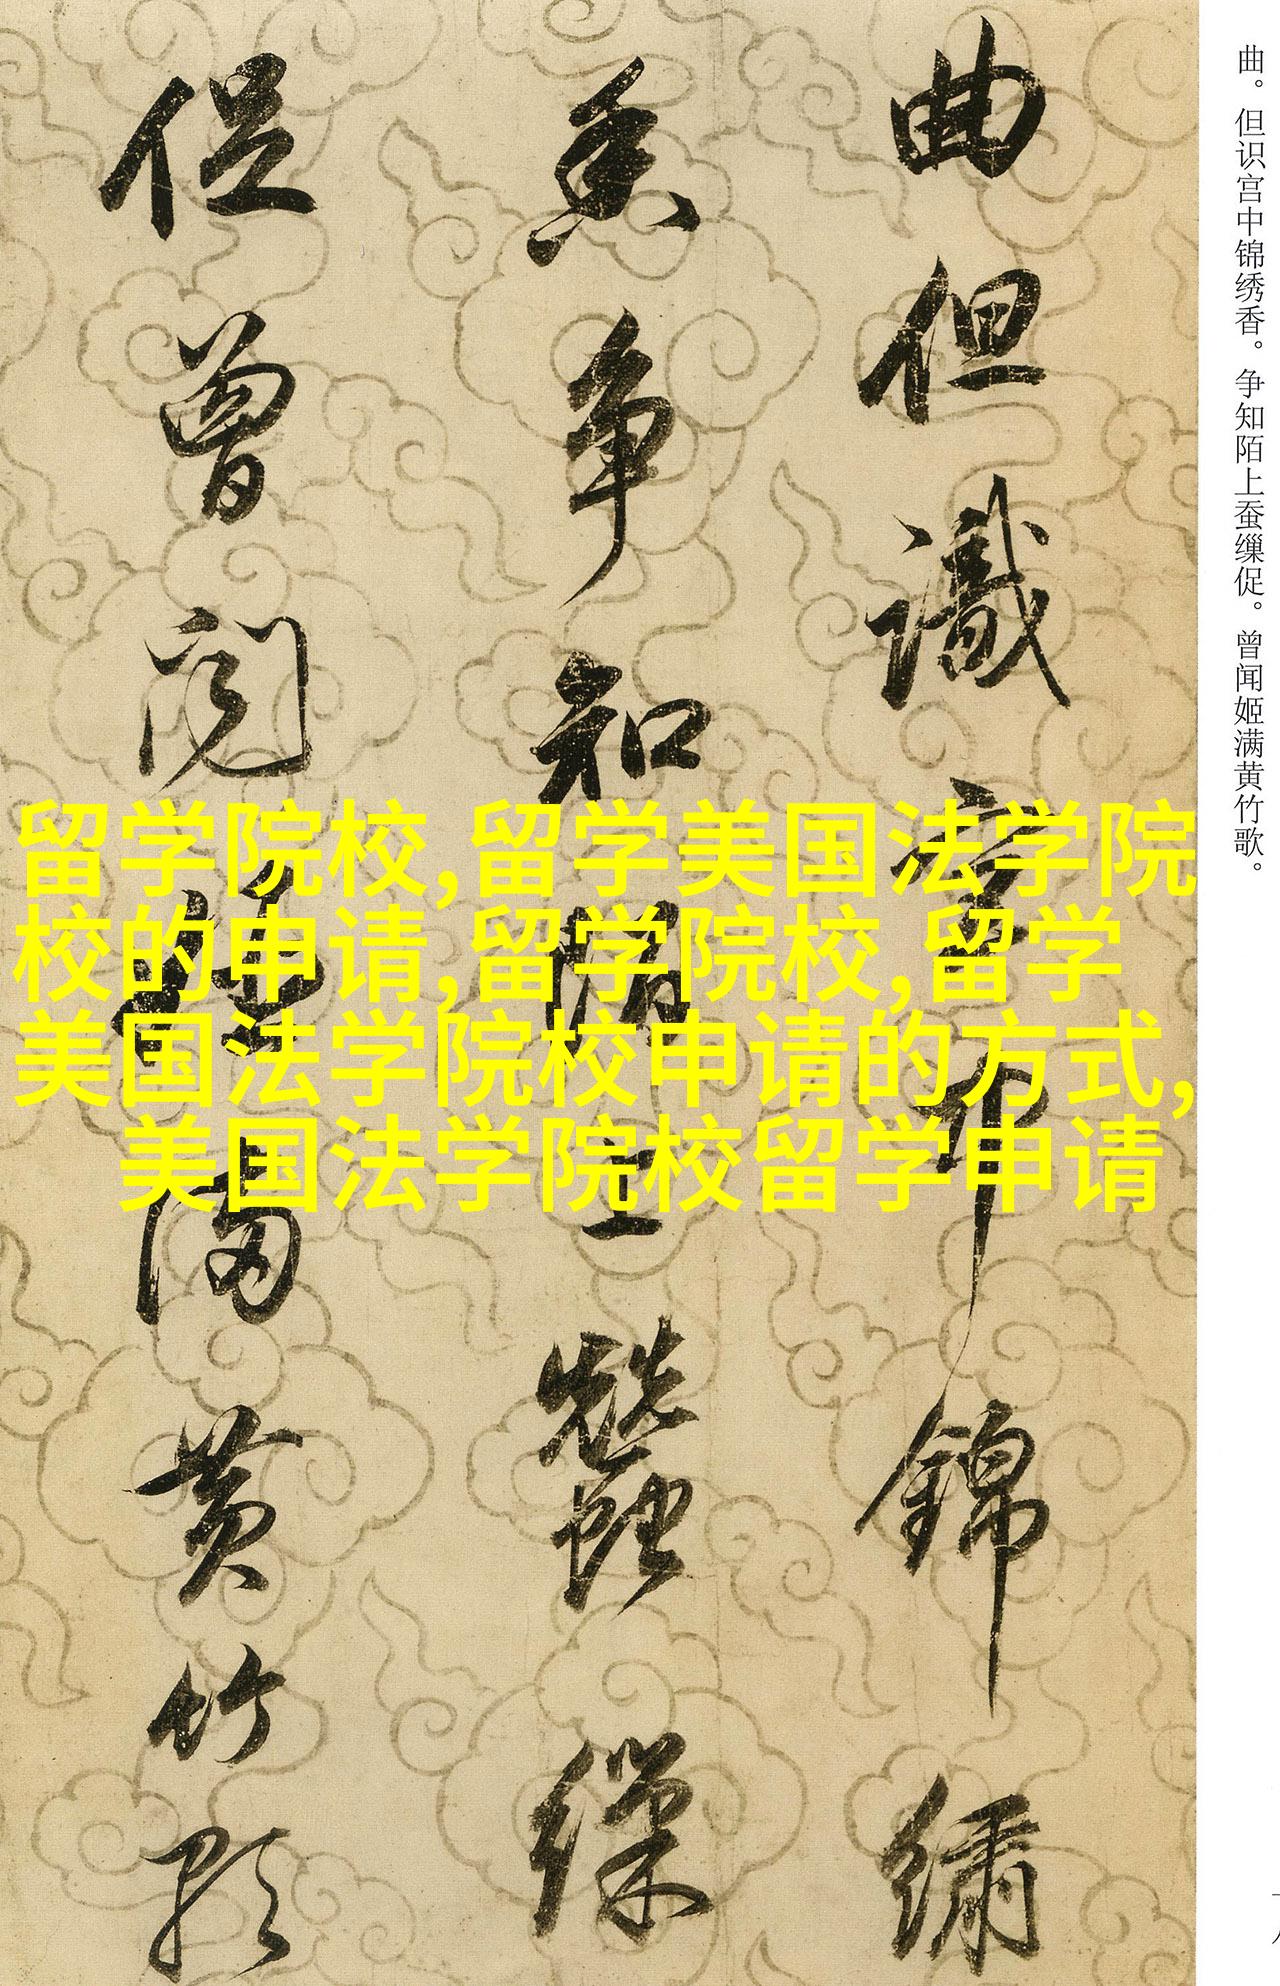 曲。但识宫中锦绣香。争知陌上蚕缫促。曾闻姬满黄竹歌。
曲但識宮中錦繡
香争知陌上蠶繅
促曾闻姬满黄竹歌
留学院校,留学美国法学院
校的申请,留学院校,留学
美国法学院校申请的方式,
美国法学院校留学申请